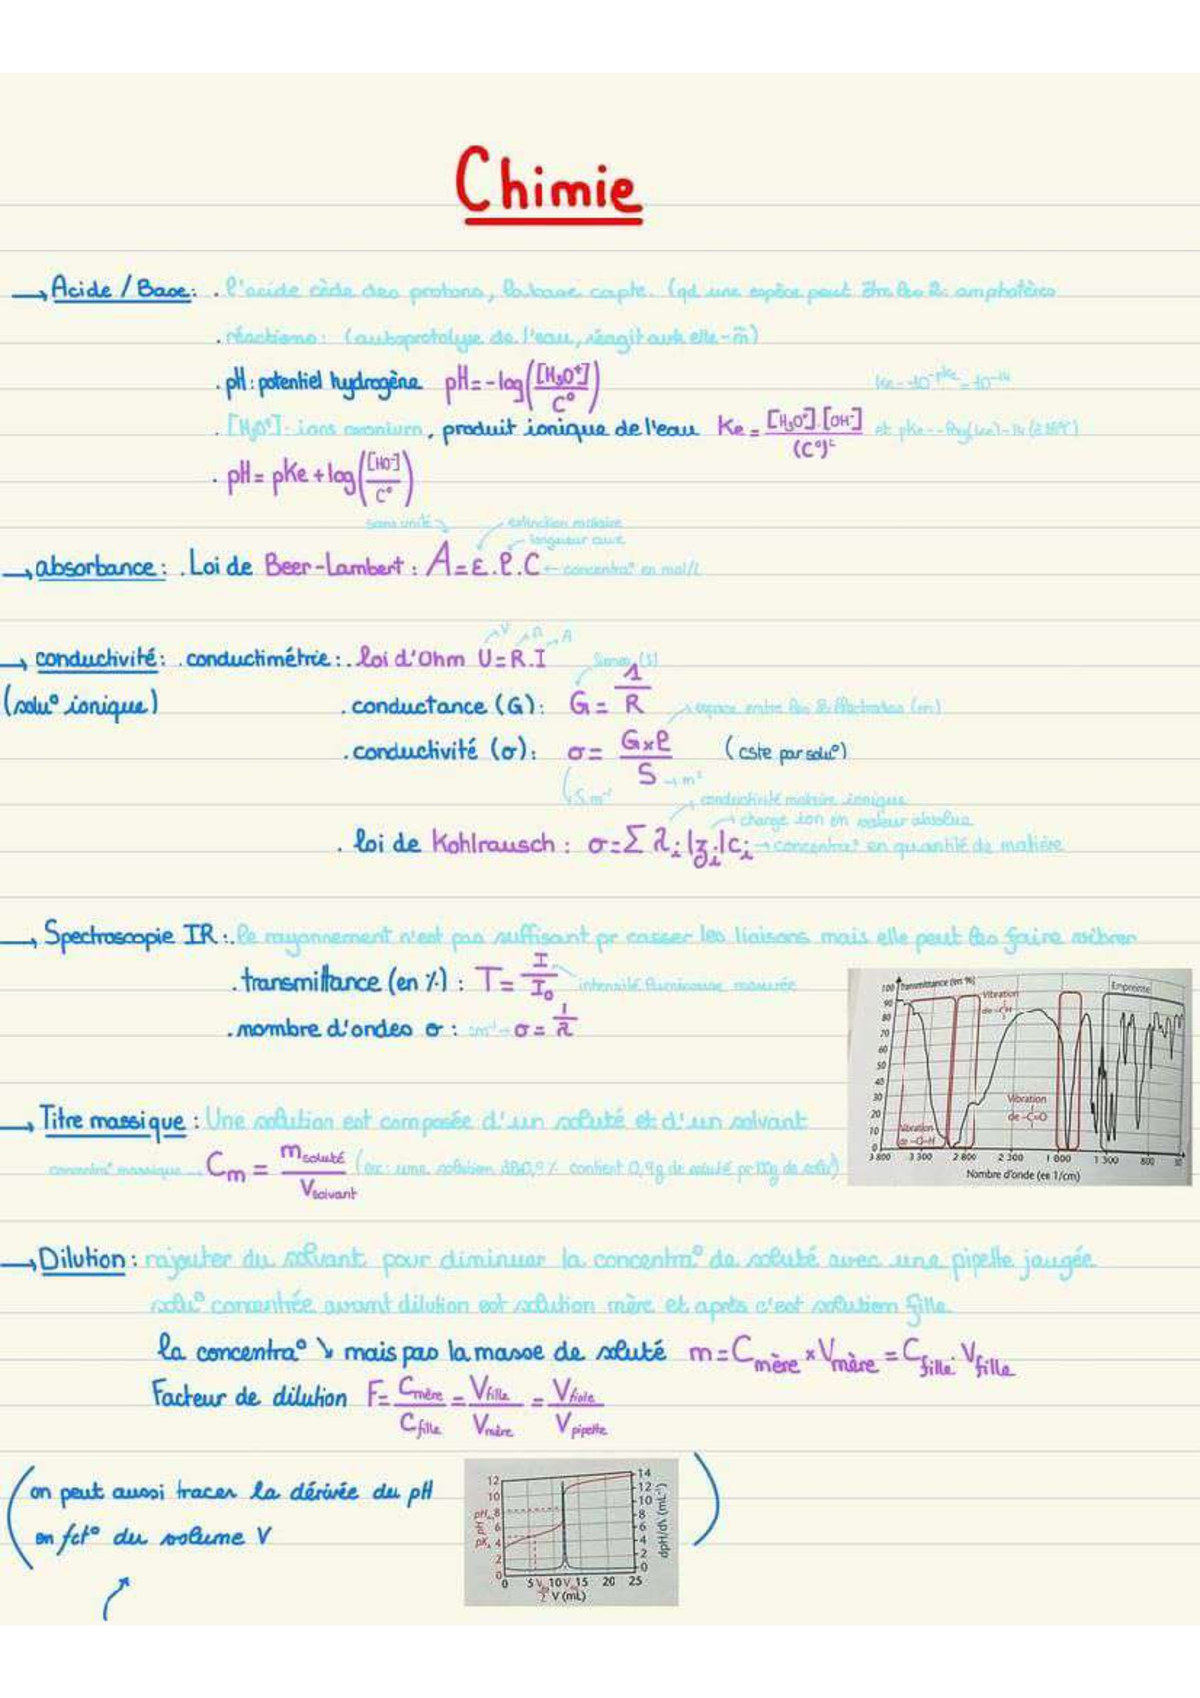 Chimie
→ Acide / Base : . l'acide cède des protons, la base capte. (qd une espèce peut être les 2 : amphotères
. réactions : (autoprotolyse de l'eau, réagit avk elle-m̃)
. pH : potentiel hydrogène pH = -log([H₃O⁺]/C°) Ke = 10^-pKe = 10^-14
. [H₃O⁺] : ions oxonium, produit ionique de l'eau Ke = [H₃O⁺].[OH⁻]/(C°)² et pKe = -log(Ke) = 14 (à 25°C)
. pH = pKe + log([HO⁻]/C°)
sans unité extinction molaire
longueur cuve
→ absorbance : . Loi de Beer-Lambert : A = ε.l.C ← concentra° en mol/L
V Ω A
→ conductivité : . conductimétrie : . loi d'Ohm U = R.I Siemens (S)
(solu° ionique) . conductance (G) : G = 1/R
→ espace entre les 2 électrodes (m)
. conductivité (σ) : σ = G×l/S (cste par solu°)
S.m⁻¹ → m²
→ conductivité molaire ionique
→ charge ion en valeur absolue
. loi de Kohlrausch : σ = Σ λi |zi| ci → concentra° en quantité de matière
→ Spectroscopie IR : . le rayonnement n'est pas suffisant pr casser les liaisons mais elle peut les faire vibrer
. transmittance (en %) : T = I/I₀ intensité lumineuse mesurée
. nombre d'ondes σ : cm⁻¹ → σ = 1/λ
Transmittance (en %)
100
90
80
70
60
50
40
30
20
10
0
Vibration
de -CH
Empreinte
Vibration
de -C=O
Vibration
de -O-H
3 800 3 300 2 800 2 300 1 800 1 300 800
Nombre d'onde (en 1/cm)
→ Titre massique : Une solution est composée d'un soluté et d'un solvant
concentra° massique Cm = m soluté / V solvant (ex : une solution à 0,9 % contient 0,9g de soluté pr 100g de solu°)
→ Dilution : rajouter du solvant pour diminuer la concentra° de soluté avec une pipette jaugée
solu° concentrée avant dilution est solution mère et après c'est solution fille
la concentra° ↘ mais pas la masse de soluté m = Cmère × Vmère = Cfille . Vfille
Facteur de dilution F = Cmère/Cfille = Vfille/Vmère = Vfiole/Vpipette
(on peut aussi tracer la dérivée du pH
en fct° du volume V)
12
10
8
6
4
2
0
pH
pKₐ
14
12
10
8
6
4
2
0
dpH/dV (mL⁻¹)
0 5 10 15 20 25
V (mL)